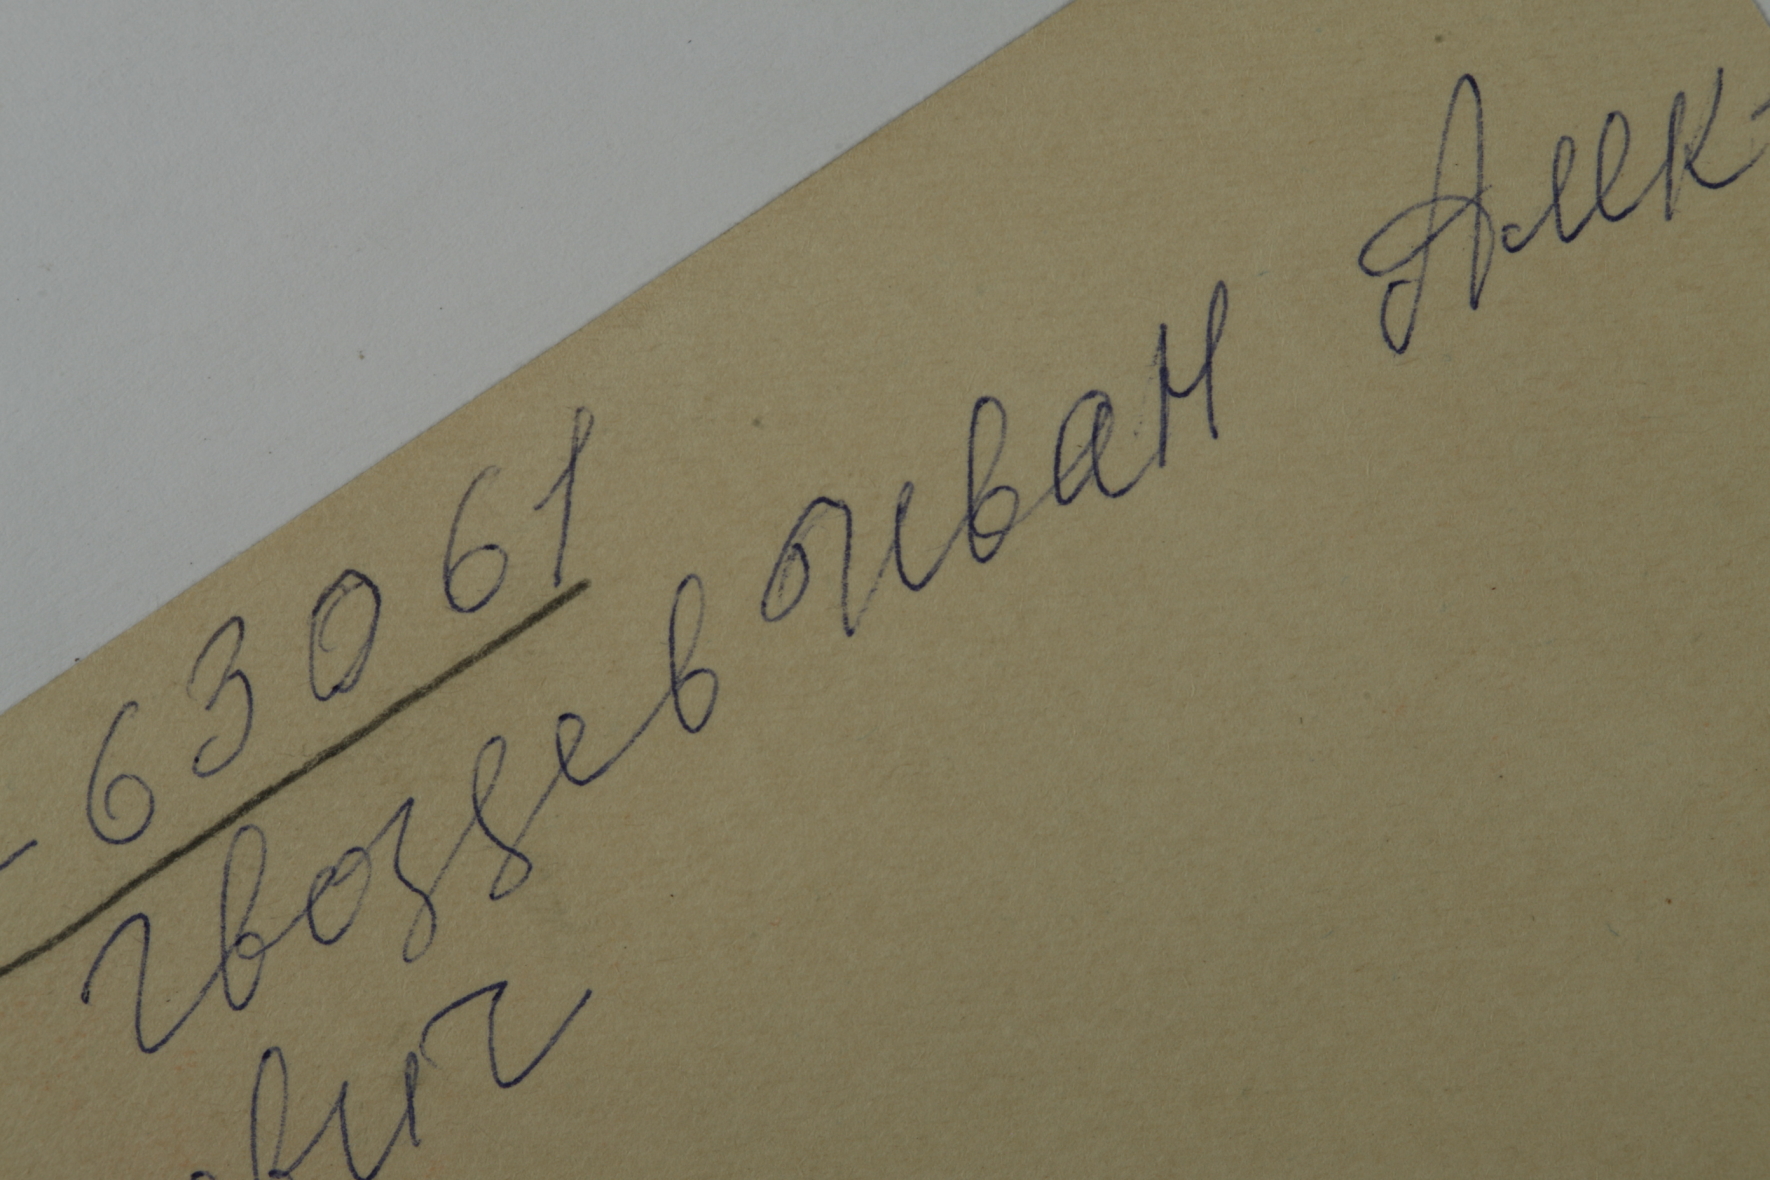 - 63061
гвоздев Иван Алек-
ович